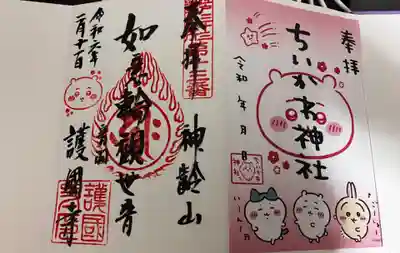 奉拝
ちいかわ神社
令和 年 月 日
ちいかわ
神社
奉拝
神齢山
如意輪観世音
護國寺
令和六年